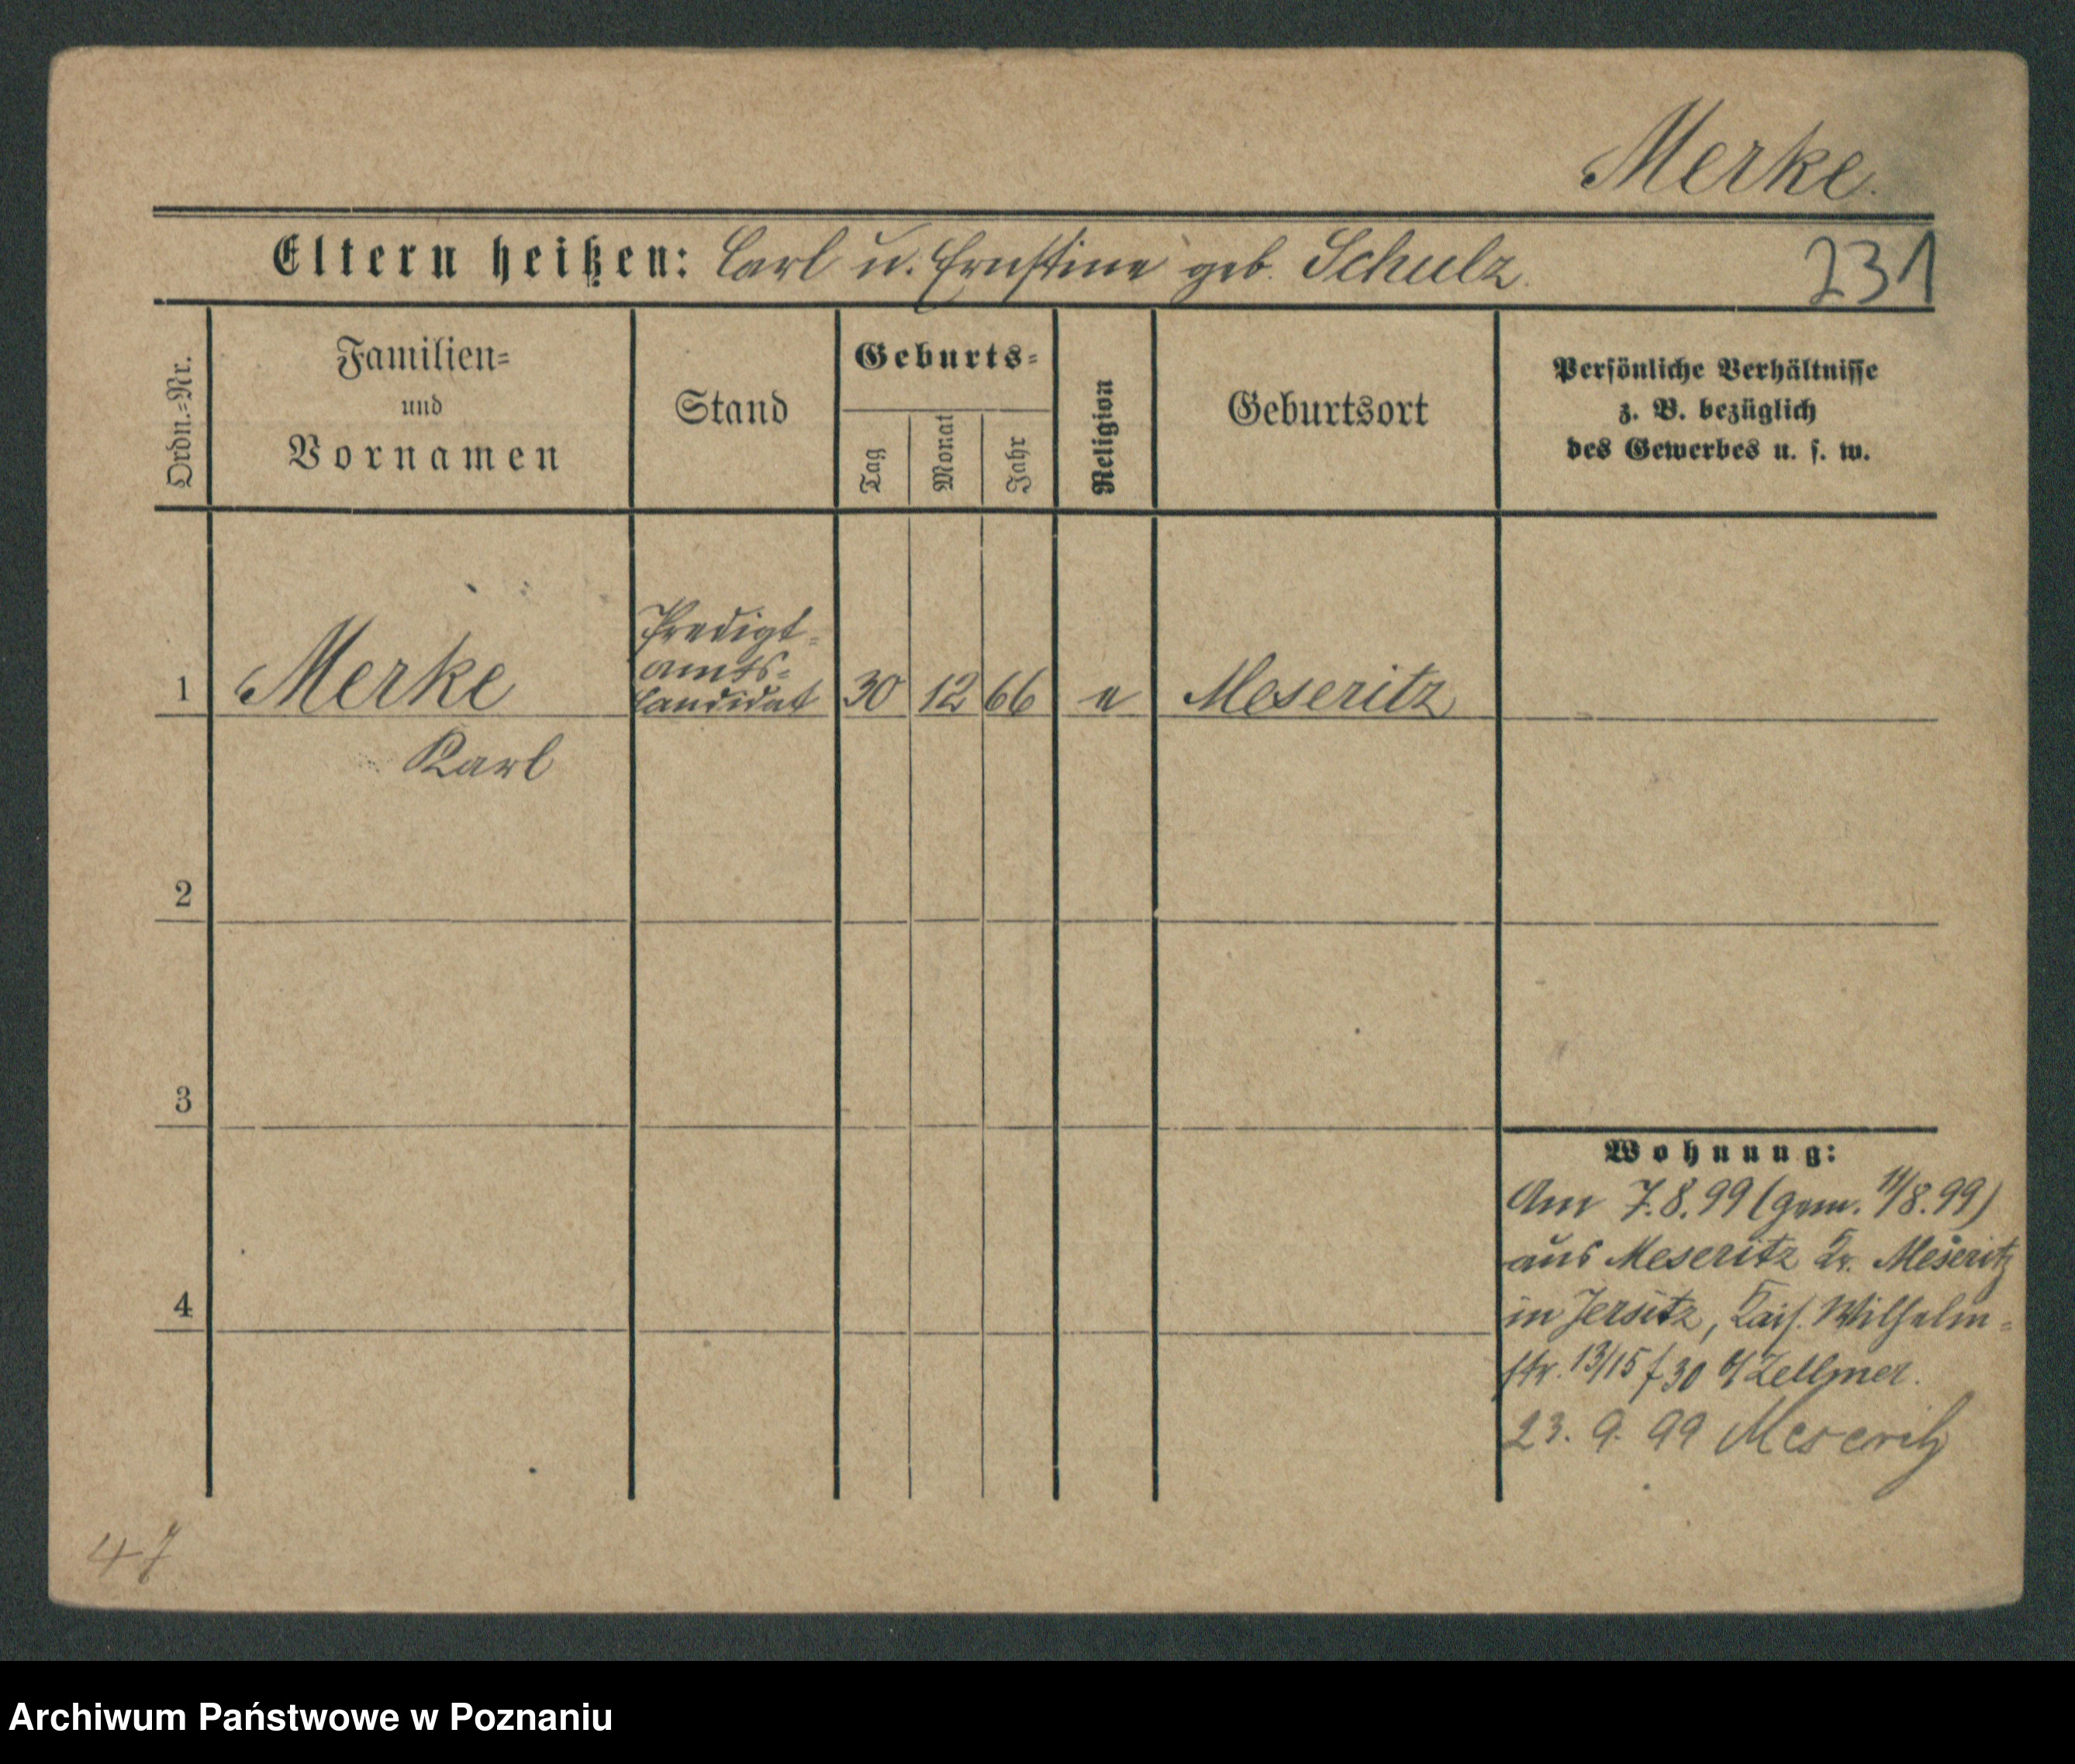 Merke.
Eltern heißen: Carl u. Ernstine geb. Schulz.
231
Ordn.=Nr.
Familien=
und
Vornamen
Stand
Geburts=
Tag
Monat
Jahr
Religion
Geburtsort
Persönliche Verhältnisse
z. B. bezüglich
des Gewerbes u. s. w.
Predigt=
amts=
1 Merke Candidat 30 12 66 e Meseritz
Karl
2
3
Wohnung:
Am 7.8.99 (gem. 11/8.99)
aus Meseritz Kr. Meseritz
4
in Jersitz, Kais. Wilhelm=
str. 13/15 f 30 b/ Zellmer.
23. 9. 99 Meseritz
47
Archiwum Państwowe w Poznaniu